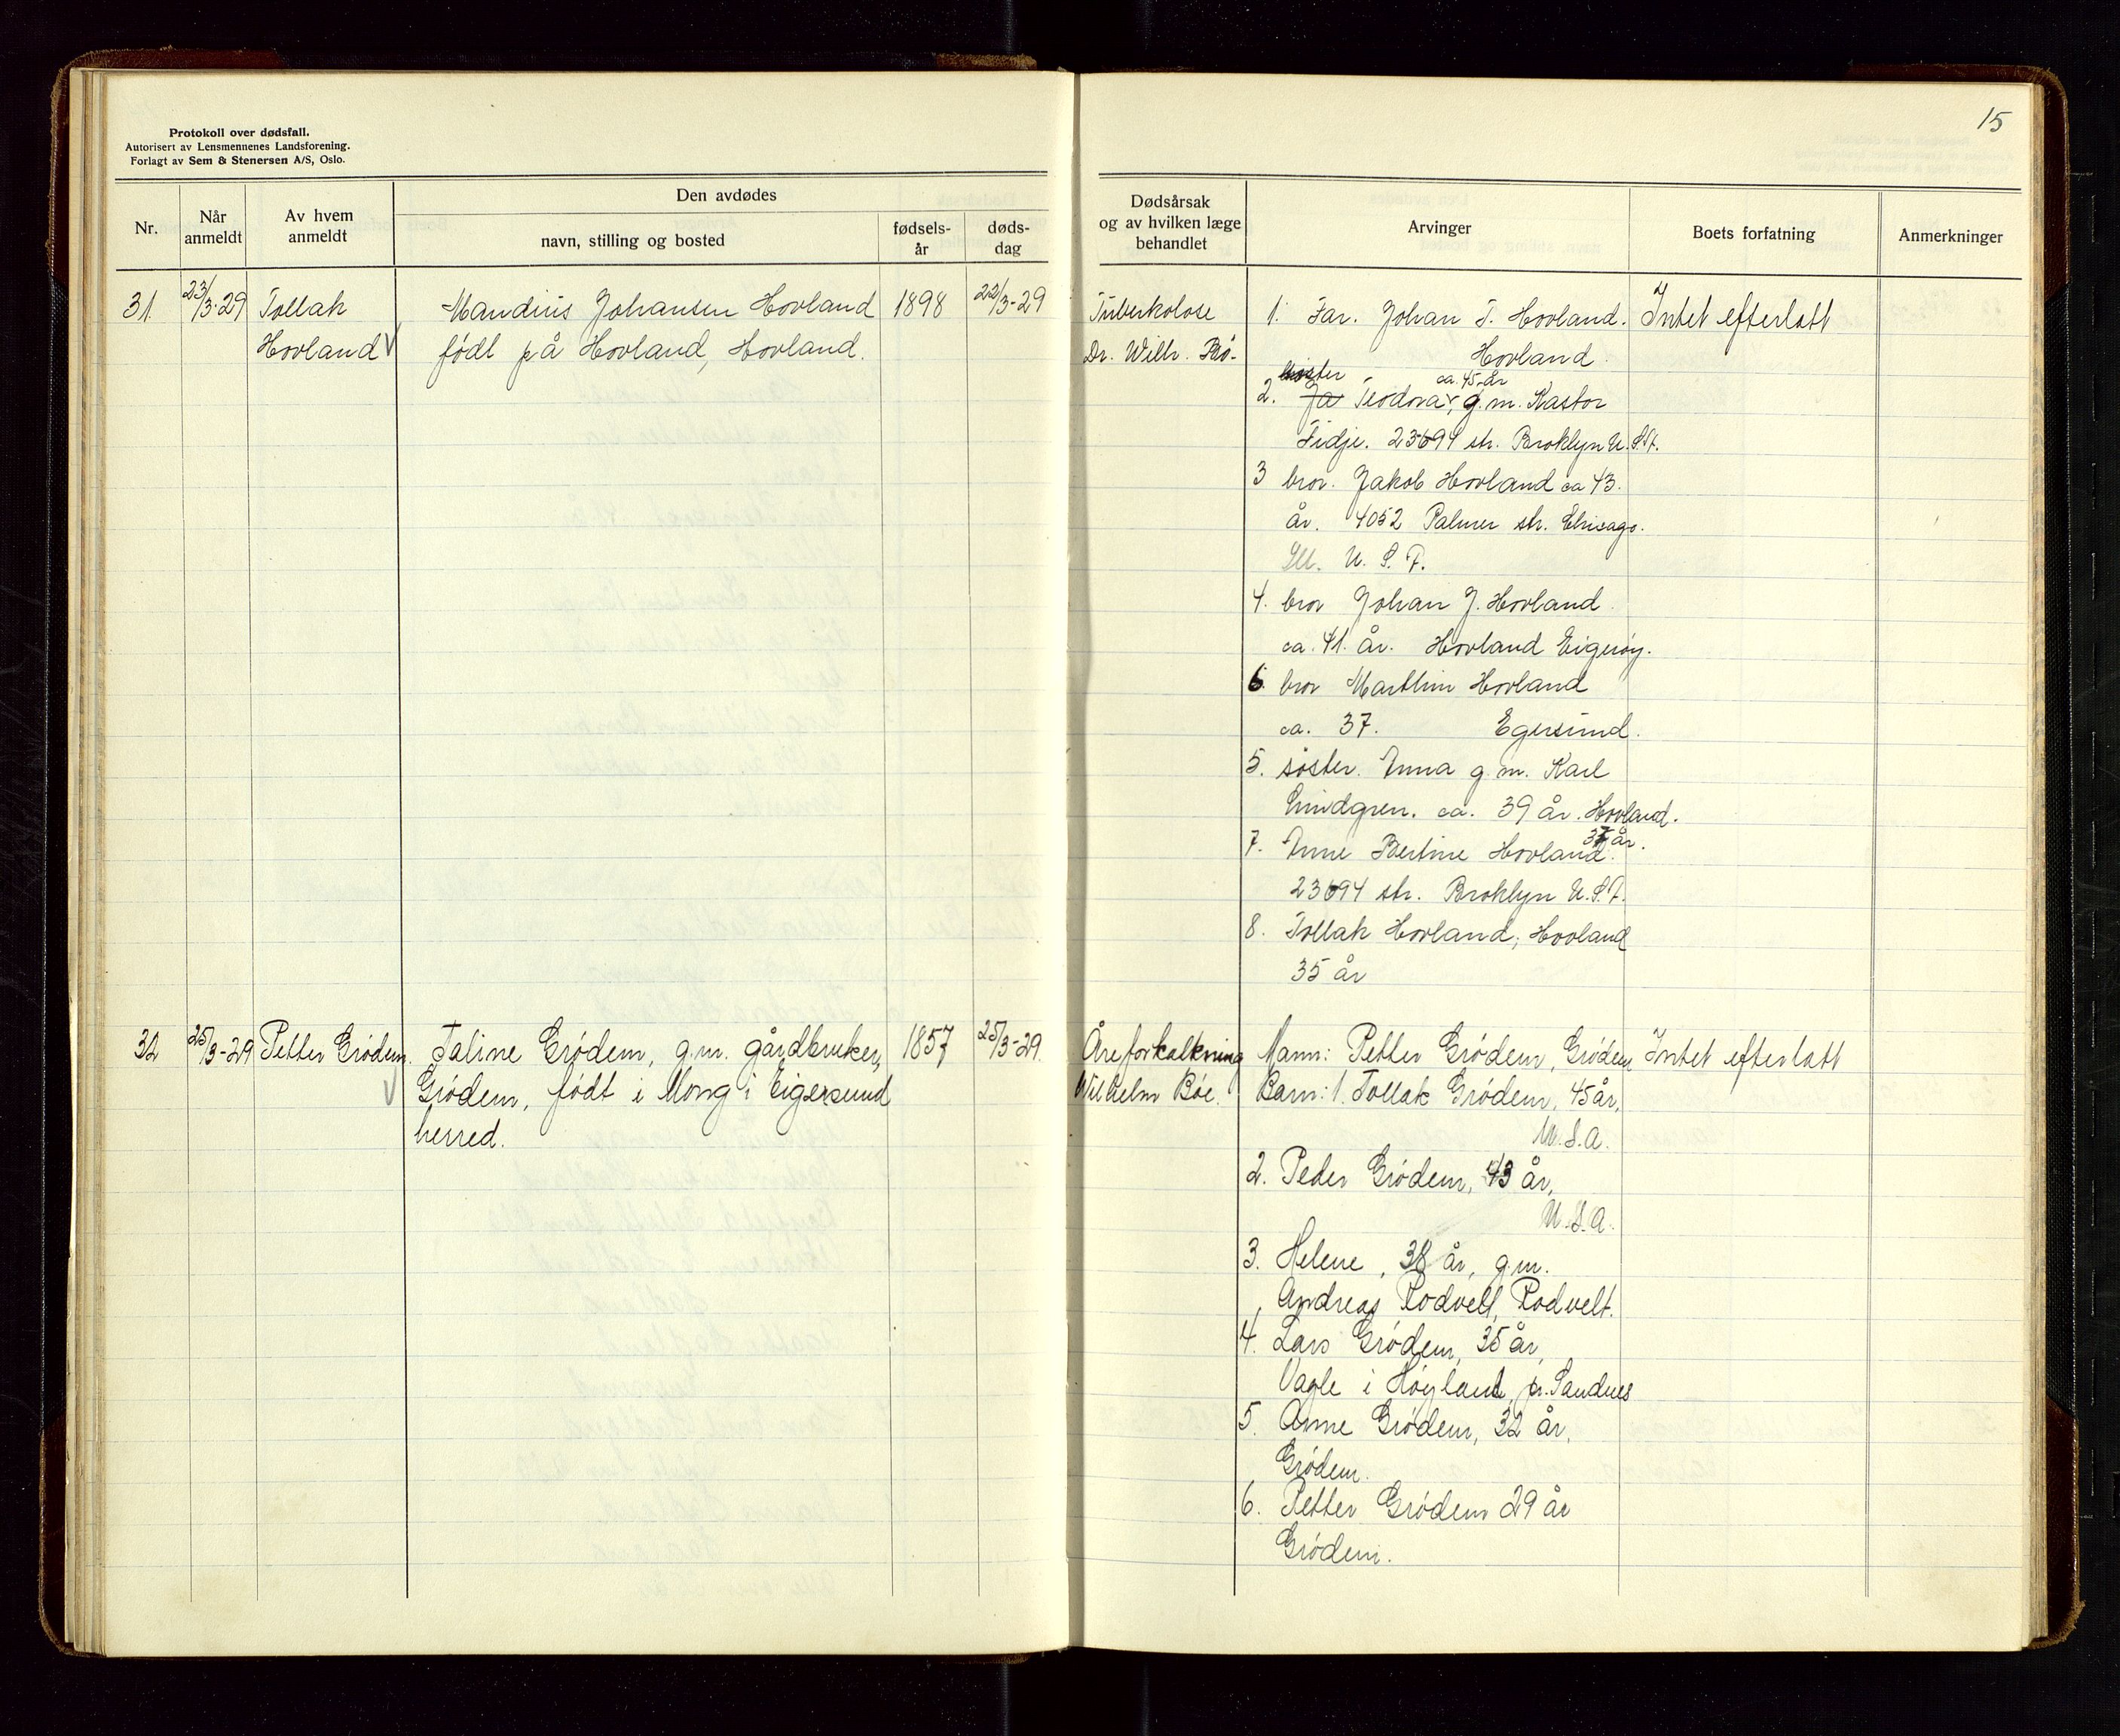 Protokoll over dødsfall.
Autorisert av Lensmennenes Landsforening.
Forlagt av Sem & Stenersen A/S, Oslo.
15
Nr.
Når
anmeldt
Av hvem
anmeldt
Den avdødes
navn, stilling og bosted
fødsels-
år
døds-
dag
Dødsårsak
og av hvilken læge
behandlet
Arvinger
Boets forfatning
Anmerkninger
31. 23/3-29 Tollak
Hovland
Mandius Johansen Hovland
født på Hovland, Hovland.
1898 22/3-29
Tuberkolose
Dr. Wilh. Bö-
1. Far. Johan T. Hovland.
Hovland.
søster ca. 45 år
2. Ja Teodora, g.m. Kastor
Fidje. 23694 str. Broklyn U.S.A.
3 bror. Jakob Hovland ca 43.
år. 4052 Palmer str. Chicago.
Ill. U.S.A.
4. bror Johan J. Hovland
ca. 41. år. Hovland Eigerøy.
6. bror Marthin Hovland
ca. 37. Egersund.
5. søster. Anna g.m. Karl
Lindgren. ca. 39 år. Hovland.
7. Anne Bertine Hovland. år.
23694 str. Broklyn U.S.A.
8. Tollak Hovland, Hovland
35 år
Intet efterlatt
32 25/3-29 Petter Grödem.
Taline Grödem, g.m. gårdbruker,
Grödem, födt i Mong i Eigersund
herred.
1857 25/3-29.
Åreforkalkning
Wilhelm Böe.
Mann: Petter Grödem, Grödem
Barn: 1. Tollak Grödem, 45 år,
U.S.A.
2. Peder Grödem, 43 år,
U.S.A.
3. Helene, 38 år, g.m.
Andreas Rodvelt, Rodvelt.
4. Lars Grödem, 35 år,
Vagle i Høyland, pr. Sandnes
5. Arne Grödem, 32 år,
Grödem.
6. Petter Grödem 29 år
Grödem.
Intet efterlatt